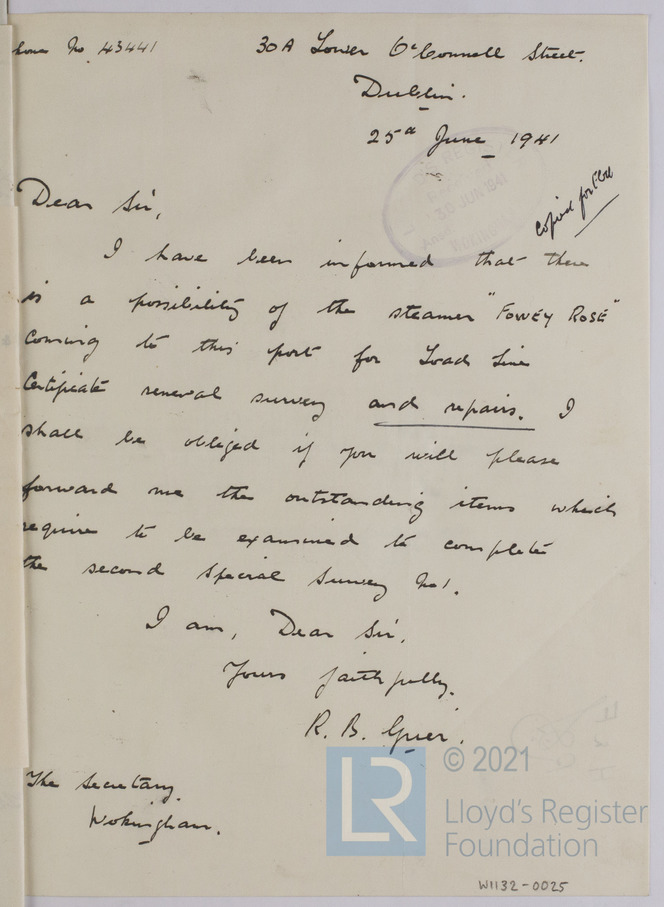 hone No 43441
30A Lower O'Connell Street.
Dublin.
25th June 1941
30 JUN 1941
Dear Sir,
I have been informed that there
is a possibility of the steamer "FOWEY ROSE"
coming to this port for Load Line
Certificate renewal survey and repairs. I
shall be obliged if you will please
forward me the outstanding items which
require to be examined to complete
the second Special Survey No 1.
I am, Dear Sir,
Yours faithfully,
R. B. Grier.
The Secretary.
Wokingham.
© 2021
LR
Lloyd's Register
Foundation
W1132-0025